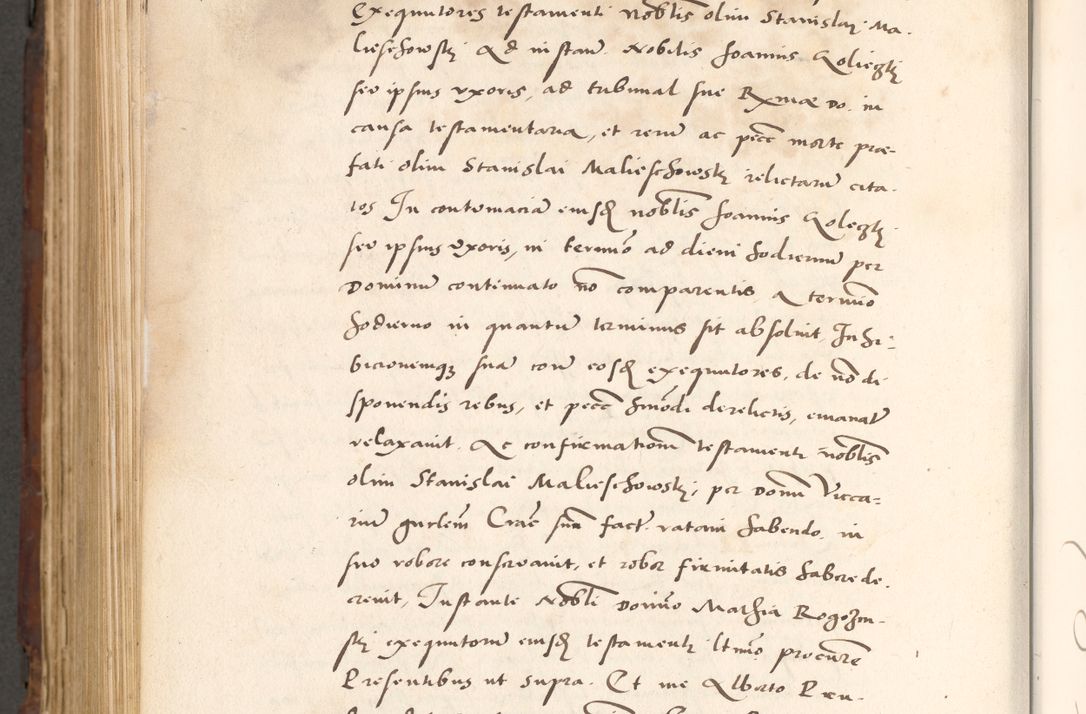 Exequutores testamenti Noblis olim Stanislai Ma-
lieschowskj Ad instan. Nobilis Joannis Golieczkj
seu ipsius vxoris, ad tribunal sue Rxmæ Do. in
causa testamentaria, et rerum ac pecc morte præ-
fati olim Stanislai Malieschowskj relictarum cita-
tos In contumaciam eiusd noblis Joannis Goleczkj
seu ipsius Vxoris, in termino ad diem hodiernum per
Dominum continuato no comparentis a termino
hodierno in quantum terminus sit absoluit, Inhi-
bicionemq suam coram eosd exequutores, de no di-
sponendis rebus, et pecc hmodi derelictis, emanat
relaxauit. Ac confirmationem testamenti noblis
olim Stanislai Malieschowskj, per Donum Vicca-
rium gnrlem Crac suum fact. ratam habendo, in
suo robore conseruauit, et robor firmitatis habere de-
creuit, Instante Nobli Domino Mathia Rogozin-
skj exequutorum eiusd testamenti ltimo procure
Presentibus ut supra. Et me Alberto